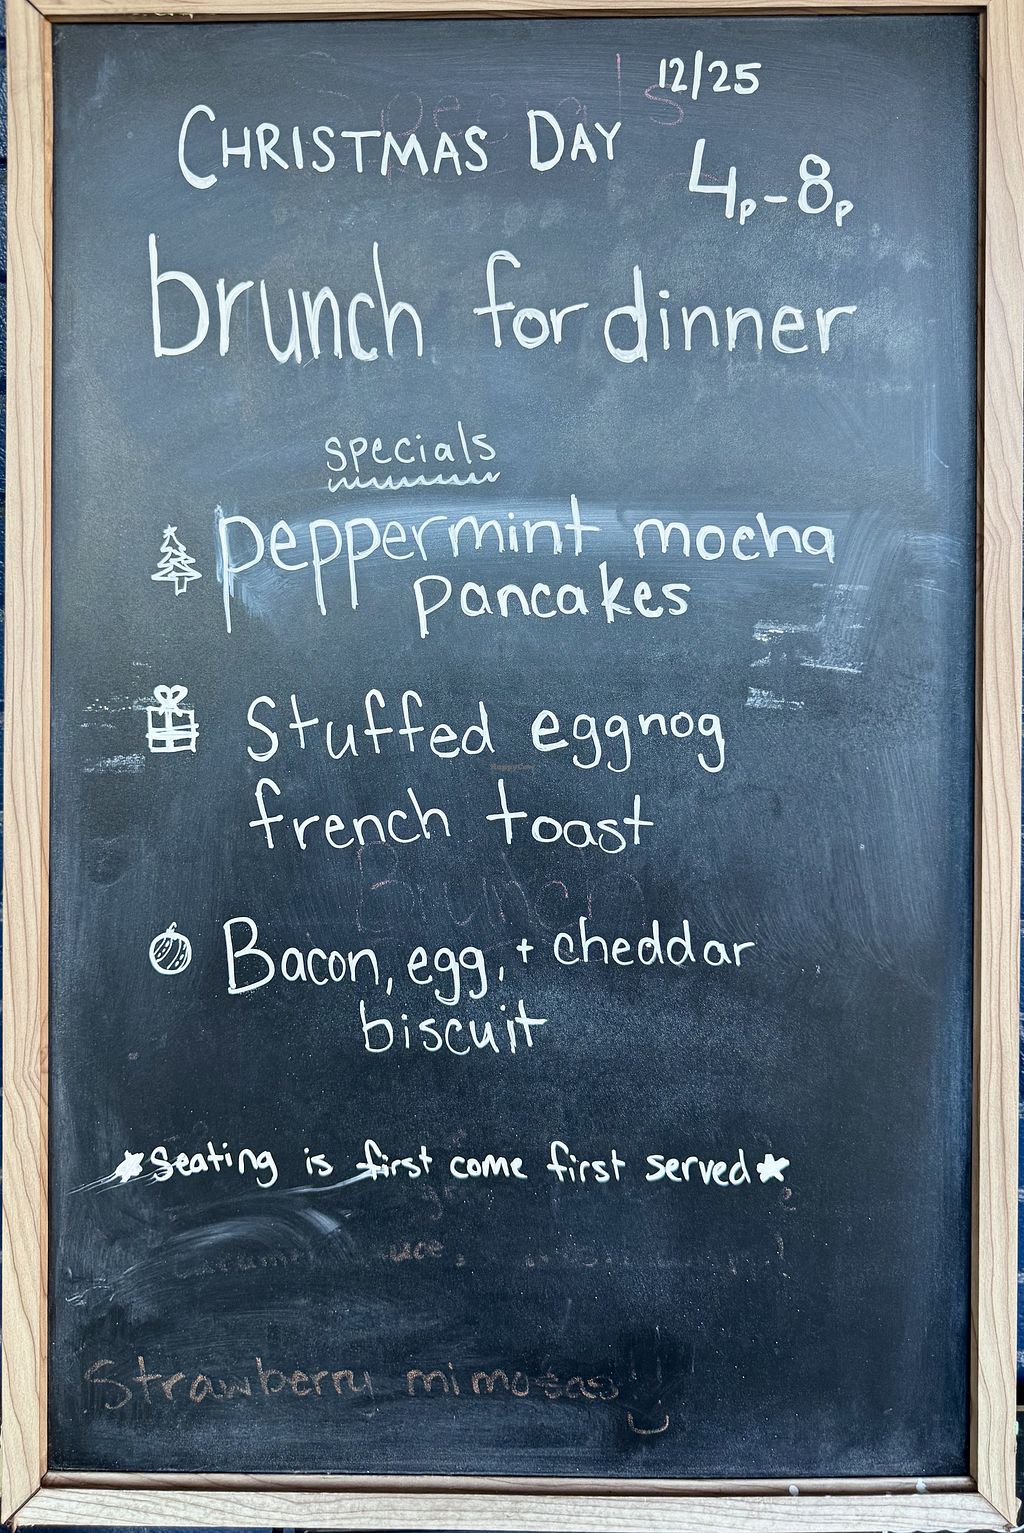 12/25
CHRISTMAS DAY
4p-8p
brunch for dinner
specials
peppermint mocha
pancakes
Stuffed eggnog
french toast
Bacon, egg, + cheddar
biscuit
Seating is first come first served
Strawberry mimosas